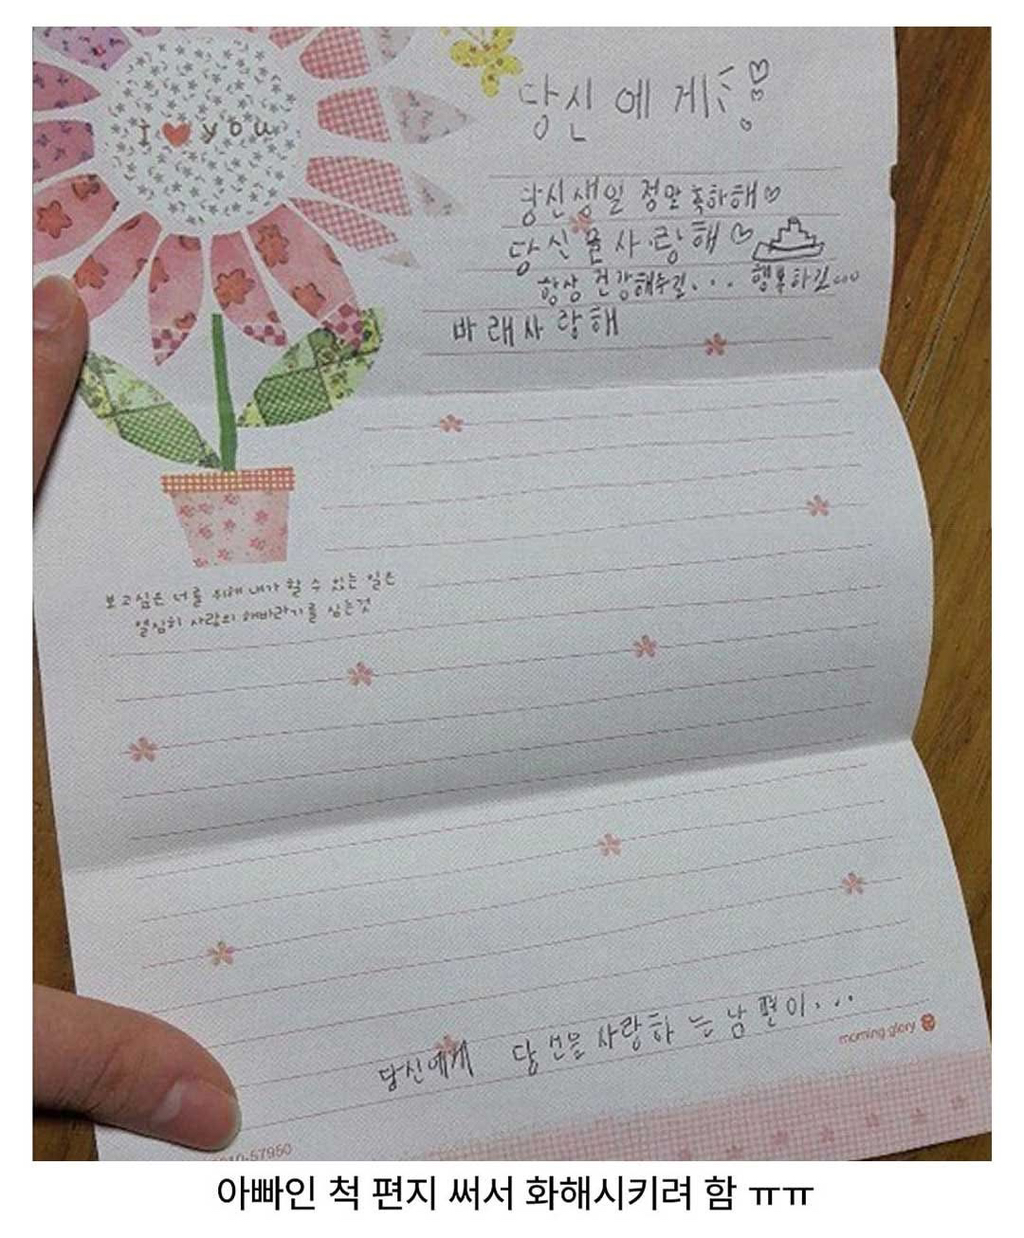 I ♥ you
당신에게
당신생일 정말 축하해♡
당신을사랑해♡
항상 건강해주길... 행복하길...
바래사랑해
보고싶은 너를 위해 내가 할 수 있는 일은
열심히 사랑의 해바라기를 심는것
당신에게 당신을사랑하는남편이...
morning glory
57950
아빠인 척 편지 써서 화해시키려 함 ㅠㅠ